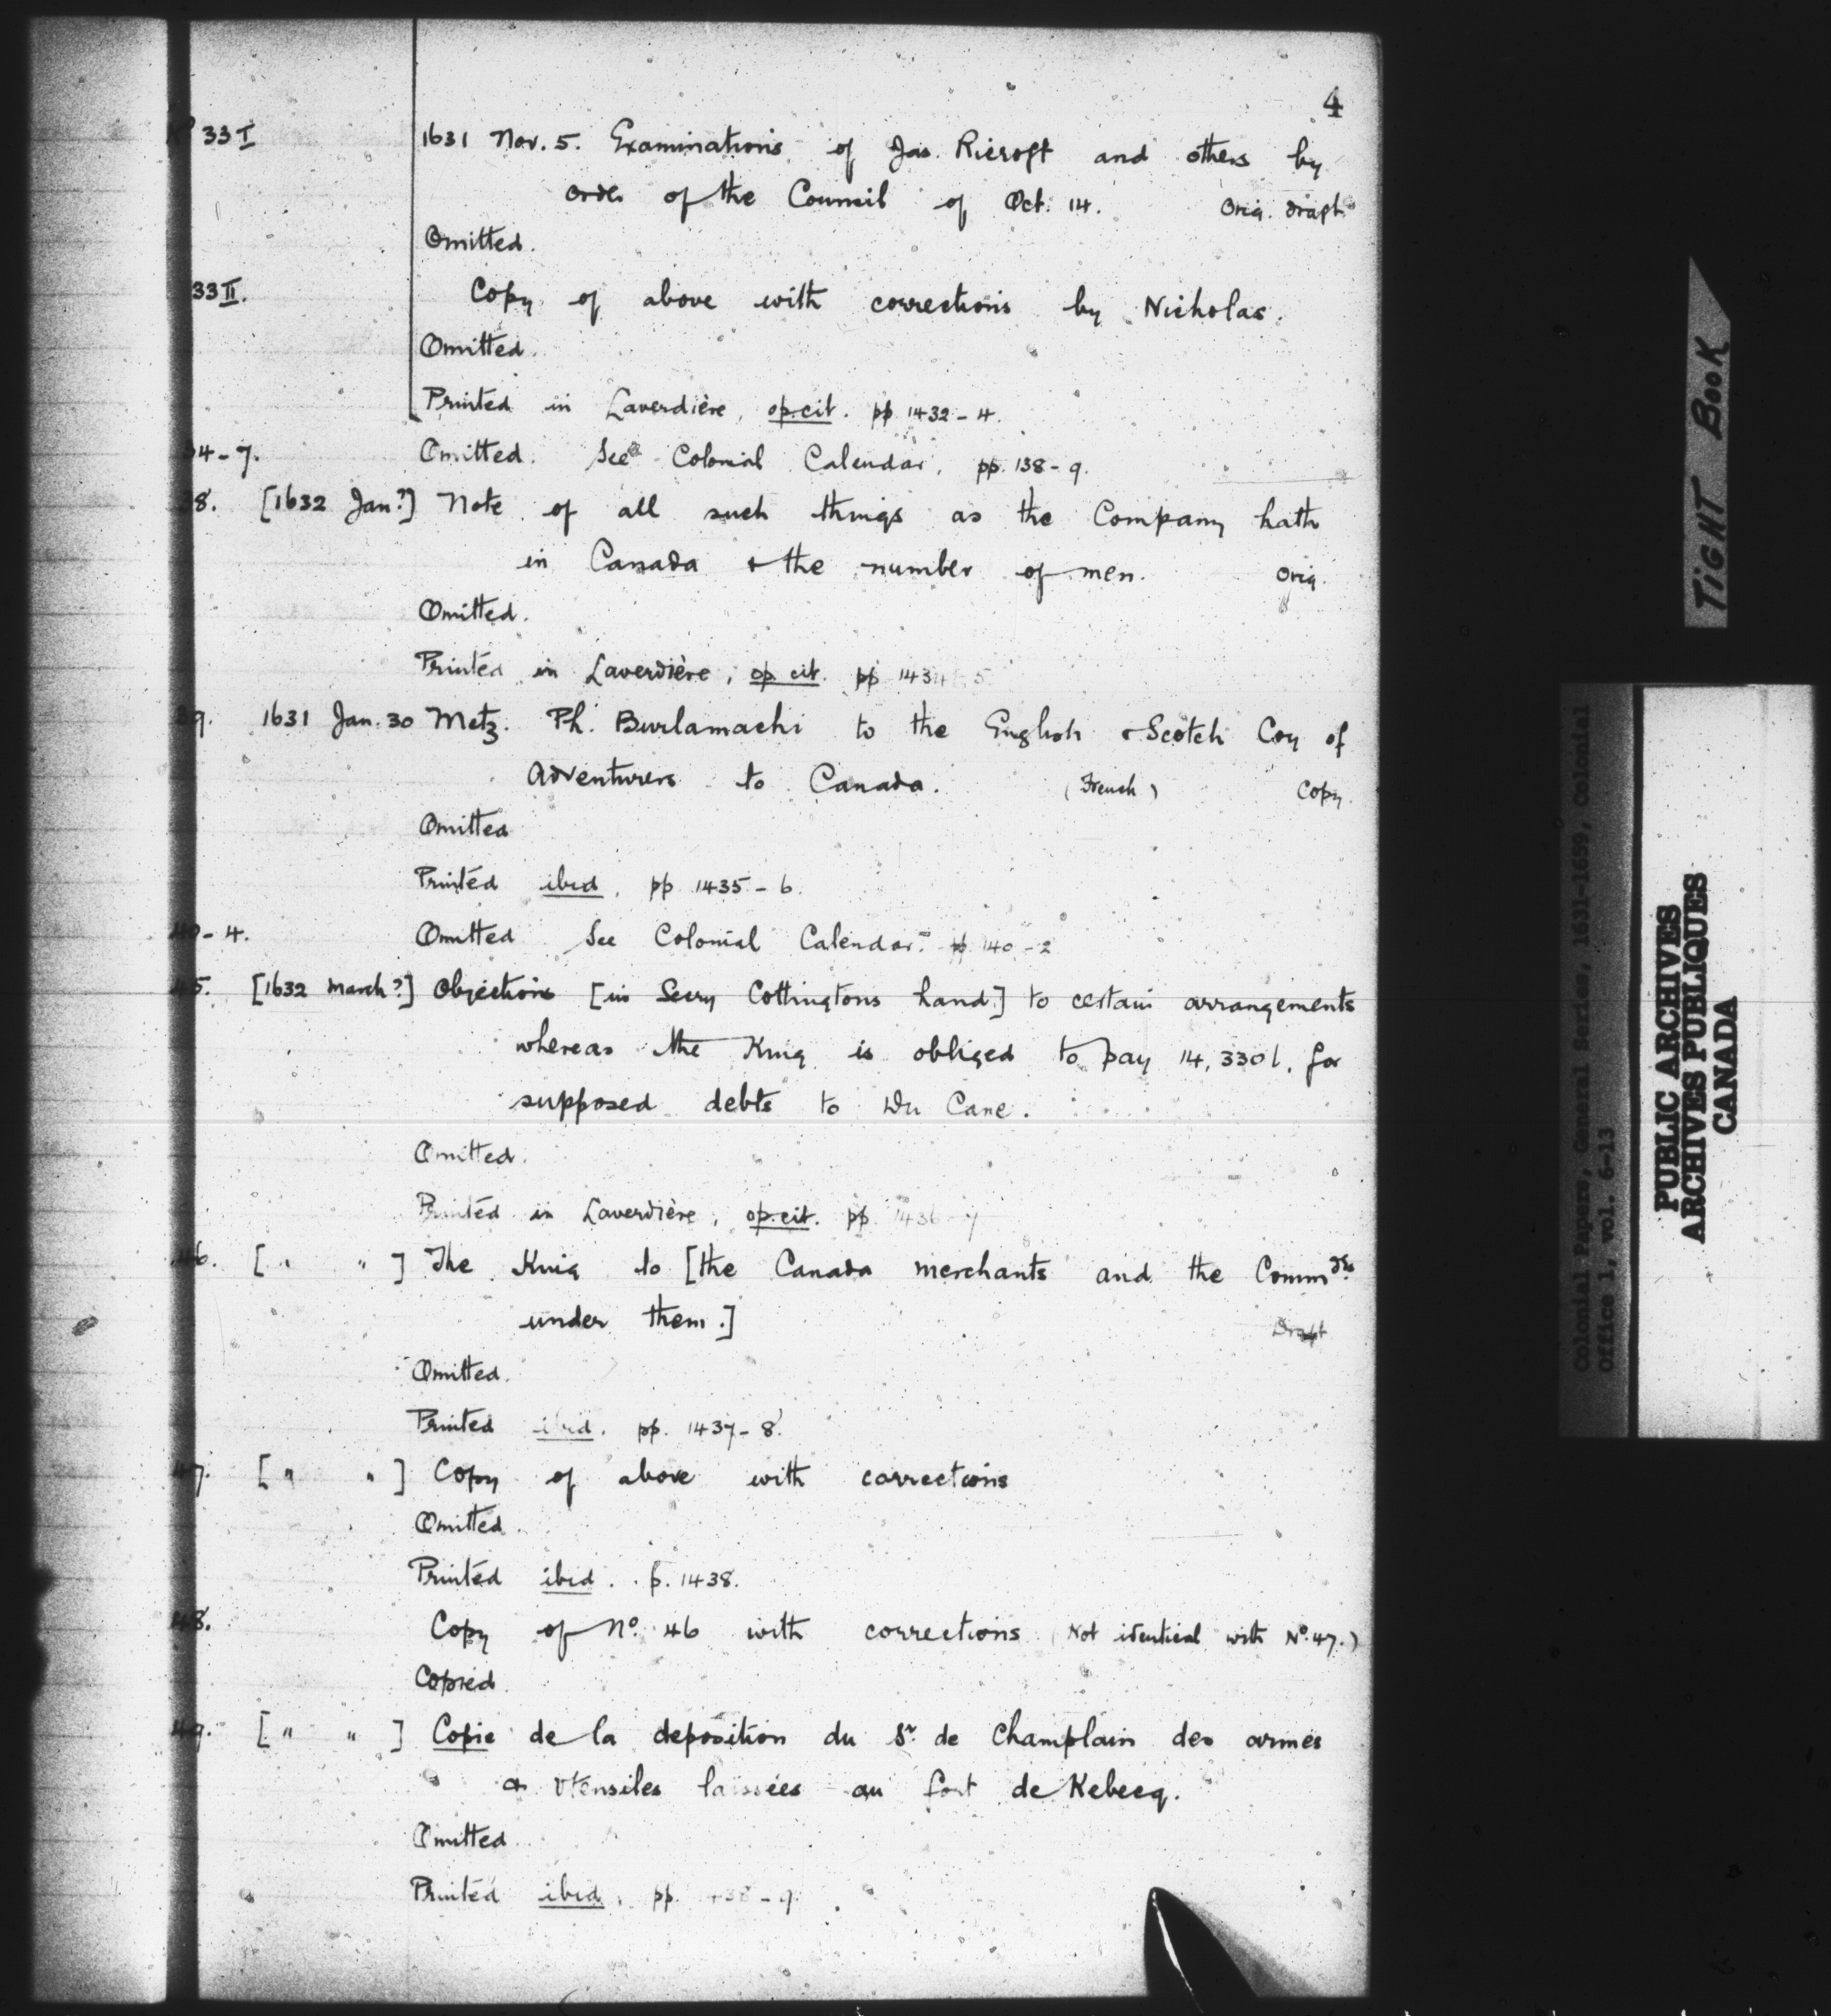 4
No 33 I 1631 Nov. 5. Examinations of Jas. Ricroft and others by
order of the Council of Oct. 14. Orig. draft
Omitted.
33 II. Copy of above with corrections by Nicholas.
Omitted.
Printed in Laverdière, op. cit. pp 1432-4.
34-7. Omitted. See Colonial Calendar, pp. 138-9.
38. [1632 Jan?] Note of all such things as the Company hath
in Canada & the number of men. Orig.
Omitted.
Printed in Laverdière, op. cit. pp 1434-5
39. 1631 Jan. 30 Metz. Ph. Burlamachi to the English & Scotch Coy of
Adventurers to Canada. (French) Copy.
Omitted
Printed ibid, pp 1435-6.
40-4. Omitted See Colonial Calendar. pp 140-2
45. [1632 March?] Objections [in Secry Cottingtons hand] to certain arrangements
whereas the King is obliged to pay 14,330l. for
supposed debts to Du Cane.
Omitted.
Printed in Laverdière, op. cit. pp 1436-7
46. [ " " ] The King to [the Canada merchants and the Commdrs
under them.] Draft
Omitted.
Printed ibid. pp. 1437-8.
47. [ " " ] Copy of above with corrections
Omitted.
Printed ibid. p. 1438.
48. Copy of No. 46 with corrections (Not identical with No. 47.)
Copied.
49. [ " " ] Copie de la deposition du Sr. de Champlain des armes
Utensiles laissées au fort de Kebecq.
Omitted
Printed ibid, pp. 1438-9.
TIGHT BOOK
Colonial Papers, General Series, 1631-1659, Colonial
Office 1, vol. 6-13
PUBLIC ARCHIVES
ARCHIVES PUBLIQUES
CANADA